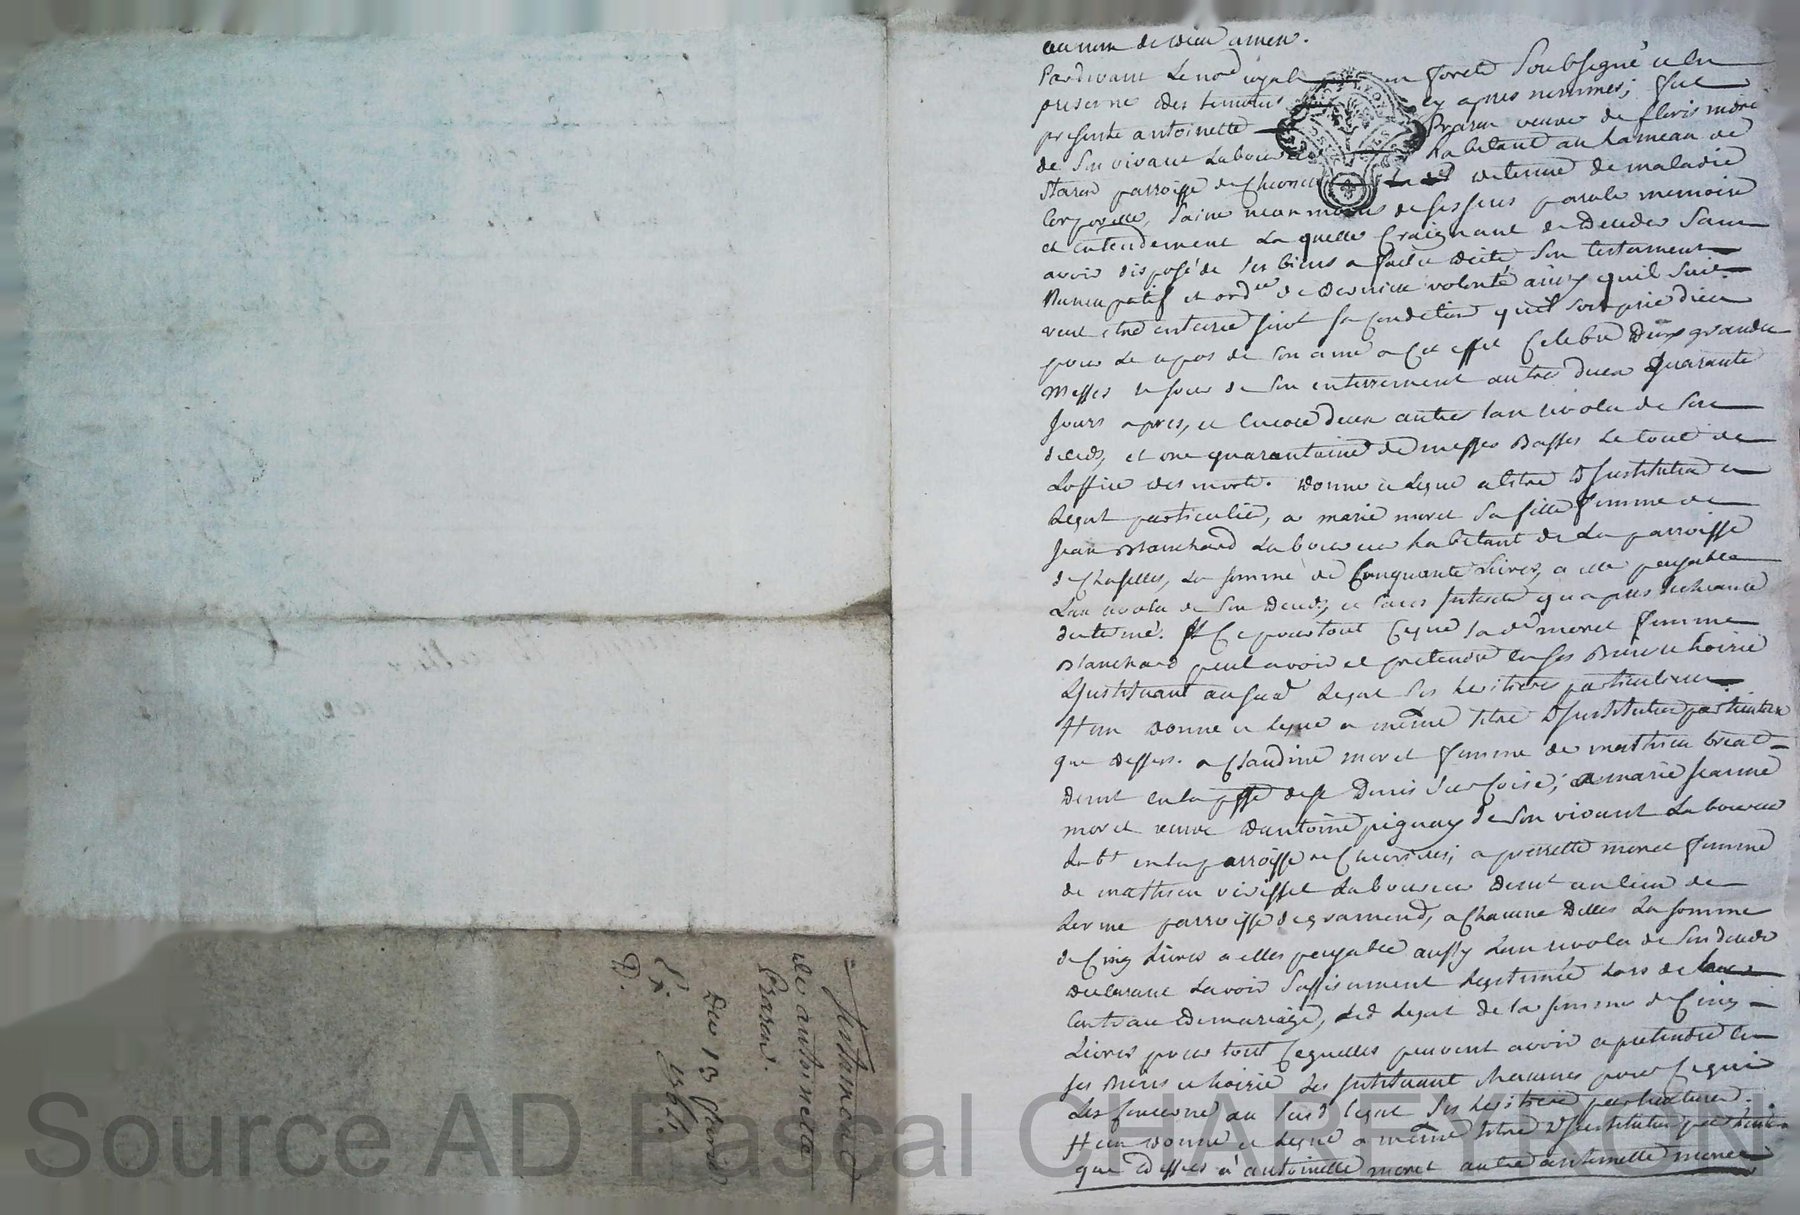 au nom de dieu amen.
Pardevant Le no.re royal en forest Soubsigné et en
presence des temoins cy apres nommés, fut
presente antoinette Brazon veuve de fleuris moret
de Son vivant Laboureur habitant au hameau de
parroisse de Chevrieres detenue de maladie
Corporelle, Saine neanmoins de Ses Sens parole memoire
et entendement La quelle Craignant de Deceder Sans
avoir disposé de Ses biens a fait et dicté Son testament
Nuncupatif et ord.ce de Derniere volonté ainsy quil Suit
veut etre enterrée Sous La Condition quil Soit prié dieu
pour Le repos de Son ame a Cet effet Celebré Deux grandes
Messes Le jour de Son enterrement autres deux Quarante
Jours apres, et encore deux autres Lan revolu de Son
deceds, et une quarantaine de messes Basses Le tout de
Loffice des morts. Donne et Legue a titre D'Institution et
Legat particulier, a marie moret Sa fille femme de
Jean Blanchard Laboureur habitant de La parroisse
de Chaselles, La Somme de Cinquante Livres, a elle payable
Lan revolu de Son Deceds, et Sans Interets qu'apres Lecheance
du terme. Et Ce pour tout Ce que la d.e moret femme
Blanchard peut avoir et pretendre en Ses Biens et hoirie
L'Instituant au Susd. Legat Son heritiere particuliere.
Item Donne et Legue a même titre D'Institution particuliere
que Dessus. a Claudine moret femme de mathieu breat
Demt en la psse de St Denis Sur Coise; a marie Jeanne
moret veuve D'antoine pignay de Son vivant Laboureur
habt en la parroisse de Chevrieres; a pierrette moret femme
de mathieu vivissel Laboureur Demt au lieu de
parroisse de gramond, a Chacune D'elles La Somme
de Cinq Livres a elles payable aussy Lan revolu de Son Deceds
Declarant Lavoir Suffisament Legitimée Lors de leur
Contrat De mariage, Led. Legat de la Somme de Cinq
Livres pour tout Ce quelles peuvent avoir a pretendre en
Ses Biens et hoirie Les Instituant Chacunes pour Ce qui
Les Concerne au Susd. Legat Ses heritieres particulieres.
Item Donne et Legue a même titre D'Institution particuliere
que Dessus a antoinette moret autre antoinette moret
Testament
de antoinette
Brazon.
Du 13
1761.
Ex.
D.
Source AD Pascal CHAREYRON